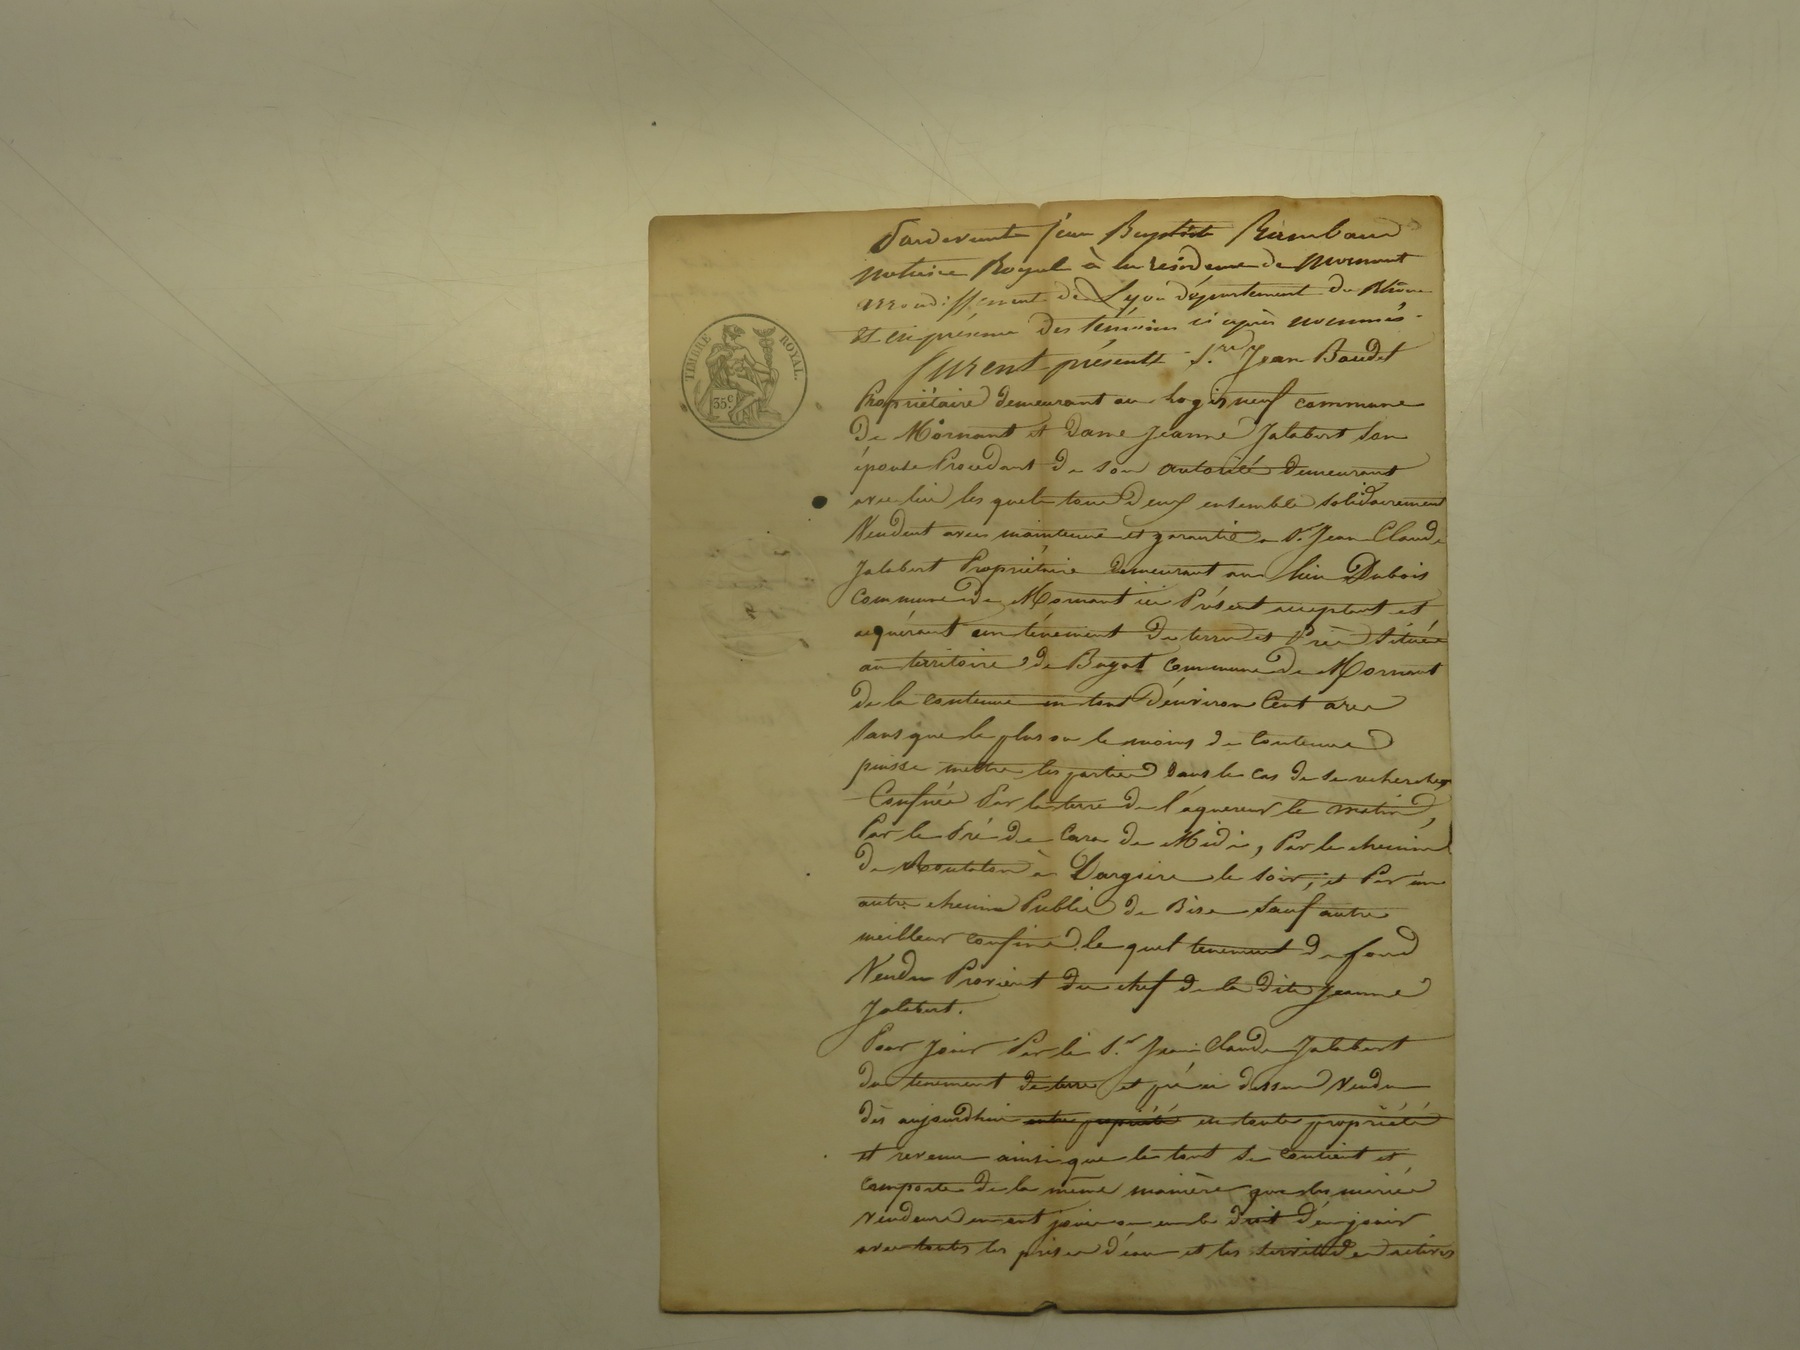 TIMBRE ROYAL.
35c.
Pardevant Jean Baptiste Rambaud
notaire Royal à la résidence de Mornant
arrondissement de Lyon département du Rhône
et en présence des témoins ci après nommés
furent présents Sr. Jean Baudet
Propriétaire demeurant au Logis neuf commune
de Mornant et dame Jeanne Jalabert son
épouse Procedant de son autorité demeurant
avec lui les quels tous deux ensemble solidairement
Vendent avec maintenue et garantie a Sr. Jean Claude
Jalabert Propriétaire demeurant au lieu Dubois
commune de Mornant ici Présent acceptant et
aquérant un tènement de terre et Pré située
au territoire de Bayot commune de Mornant
de la contenue en tout d'environ Cent ares
sans que le plus ou le moins de contenue
puisse mettre les parties dans le cas de se rechercher
Confinée Par la terre de l'aquereur le matin,
Par le Pré de de Midi, Par le chemin
de à Dargoire le soir, et Par un
autre chemin Public de Bise sauf autre
meilleur confins. le quel tenement de fond
Vendu Provient du chef de la dite Jeanne
Jalabert.
Pour jouir Par le Sr. Jean Claude Jalabert
du tenement de terre et pré ci dessus Vendu
dès aujourdhui entre propriété en toute propriété
et revenu ainsi que le tout se contient et
comporte de la même manière que les mariés
vendeurs en ont joui ou eu le droit d'en jouir
avec toutes les prises d'eau et les servitudes actives